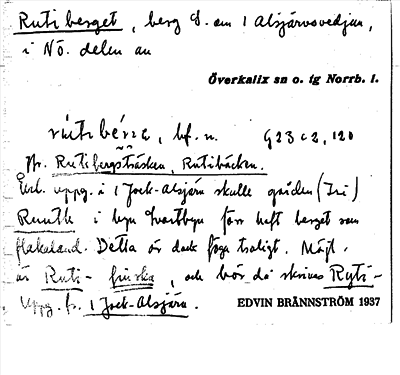 Rutiberget, berg S. om 1 Alsjärvsvedjan,
i Nö. delen av
Överkalix sn o. tg Norrb. l.
rútibérre, bf. n. G 23 c 2, 120
Jfr. Rutibergsträsken, Rutibäcken.
Enl. uppg. i 1 Jock-Alsjärv skulle gården (Tri)
Ruuth i byn Svartbyn förr haft berget som
flakaland. Detta är dock föga troligt. Möjl.
är Ruti- finska, och bör då skrivas Ryti-
Uppg. fr. 1 Jock-Alsjärv.
EDVIN BRÄNNSTRÖM 1937